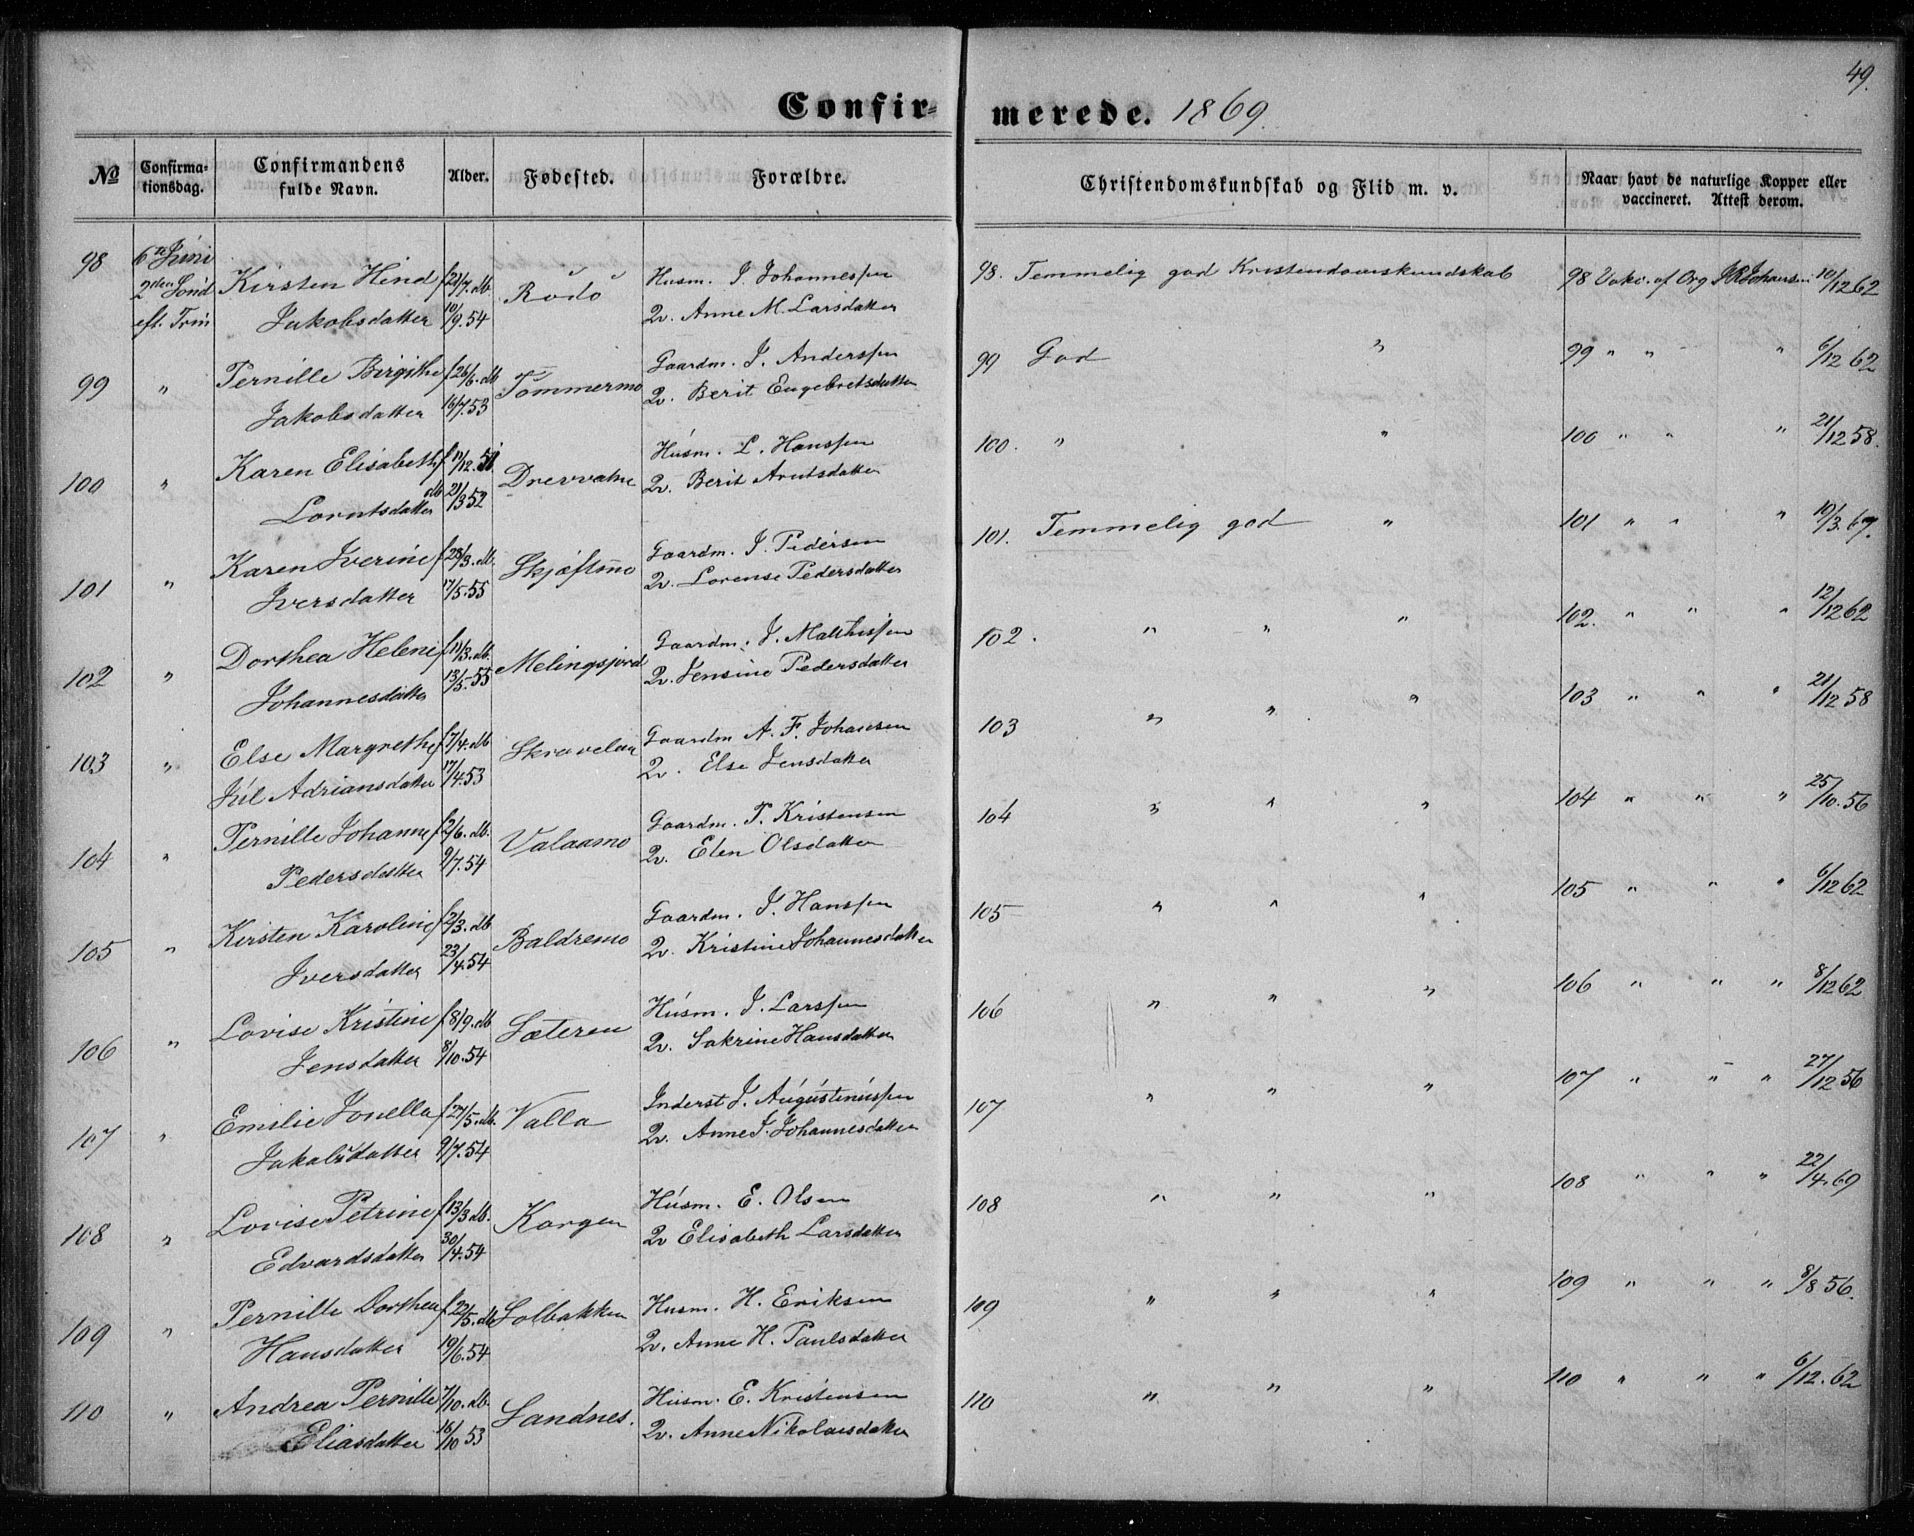 49.
Confirmerede. 1869.
No Confirmationsdag. Confirmandens fulde Navn. Alder. Fødested. Forældre. Christendomskundskab og Flid m. v. Naar havt de naturlige Kopper eller vaccineret. Attest derom.
98 6te Juni Kirsten Hind f 21/7. db. Rödö Husm. J. Johannessen 98. Temmelig god Kristendomskundskab 98 Vakc. af Org 10/12 62
2den Sönd eft. Trin Jakobsdatter 10/9. 54 Qv. Anne M. Larsdatter
99 " Pernille Birgithe f 26/6. db Tömmermo Gaardm. J. Anderssen 99 God " 99 " " " 6/12 62
Jakobsdatter 16/7. 53 Qv. Berit Engebretsdatter
100 " Karen Elisabeth f 12/12. 51 Drevvatne Husm. L. Hanssen 100. " " 100 " " " 21/12 58.
Lorntsdatter db 21/3 52 Qv. Berit Arntsdatter
101 " Karen Iverine f 28/3. db. Skjæftmo Gaardm. I. Pedersen 101. Temmelig god " 101 " " " 10/3. 67.
Iversdatter 17/5. 55 Qv. Lorense Pedersdatter
102 " Dorthea Helene f 11/3. db. Melingsjord Gaardm. J. Mathissen 102. " " " 102. " " " 12/12 62
Johannesdatter 13/5. 55 Qv. Jensine Pedersdatter
103 " Else Margrethe f 7/4. db Skravelaa Gaardm A. F. Johansen 103 " " " 103 " " " 21/12 58
Jul Adriansdatter 17/4. 53 Qv. Else Jensdatter
104 " Pernille Johanne f 2/6. db. Valaamo Gaardm. P. Kristensen 104 " " " 104 " " " 25/10. 56
Pedersdatter 9/7. 54 Qv. Elen Olsdatter
105 " Kirsten Karoline f 2/3. db Baldremo Gaardm. I. Hanssen 105 " " " 105 " " " 6/12 62
Iversdatter 23/4. 54 Qv. Kristine Johannesdatter
106 " Lovise Kristine f 8/9. db Sæteren Husm. J. Larssen 106 " " " 106 " " " 8/12 62
Jensdatter 8/10. 54 Qv. Sakrine Hansdatter
107 " Emilie Jonella f 27/5. db. Valla Inderst J. Augustinussen 107 " " " 107 " " " 27/12 56
Jakobsdatter 9/7. 54 Qv. Anne J. Johannesdatter
108 " Lovise Petrine f 13/3 db. Korgen Husm. E. Olsen 108 " " " 108 " " " 22/4. 69
Edvardsdatter 30/4. 54 Qv Elisabeth Larsdatter
109 " Pernille Dorthea f 22/5. db Solbakken Husm. H. Eriksen 109 " " " 109 " " " 8/8 56.
Hansdatter 19/6. 54 Qv. Anne H. Paulsdatter
110 " Andrea Pernille 7/10. db. Sandnes. Husm. E. Kristensen 110 " " " 110 " " " 6/12. 62
Eliasdatter 16/10 53 Qv. Anne Nikolaisdatter